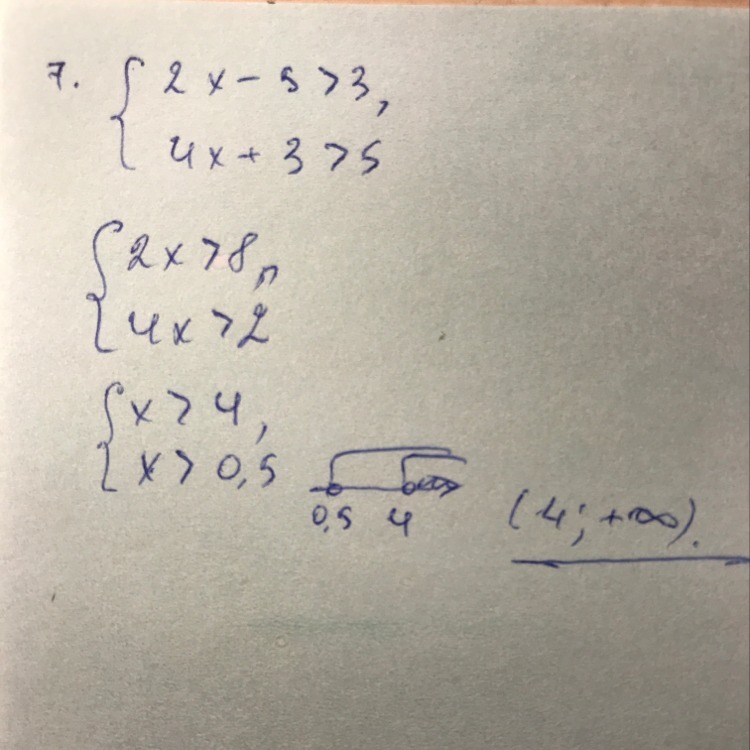 7. { 2x - 5 > 3,
4x + 3 > 5
{ 2x > 8,
4x > 2
{ x > 4,
x > 0,5
0,5 4
(4; +∞).